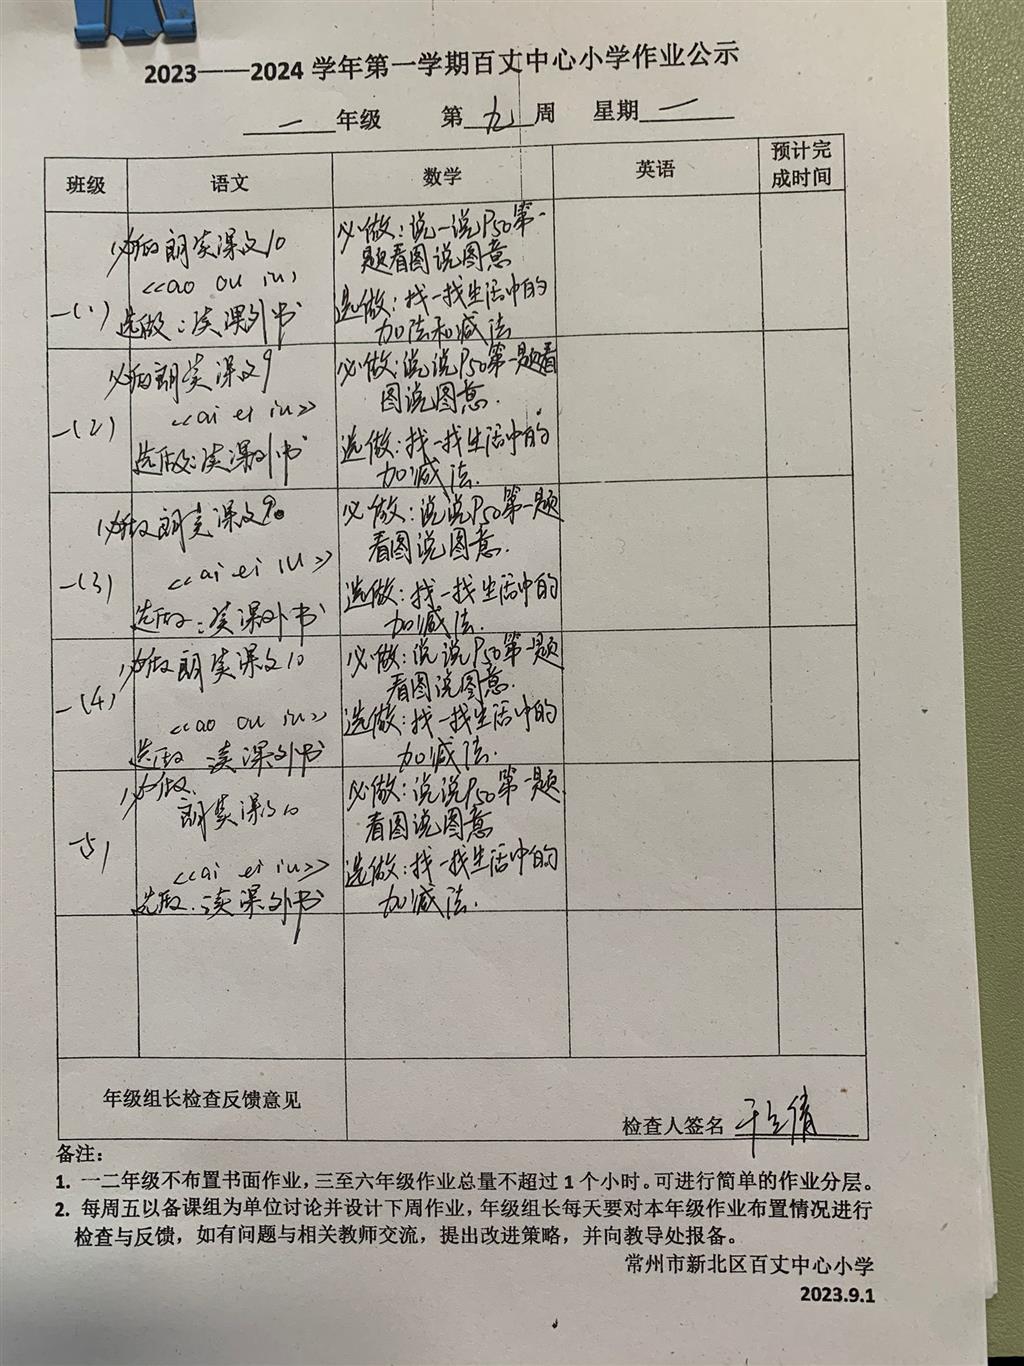 2023——2024 学年第一学期百丈中心小学作业公示
一年级 第九周 星期一
班级 语文 数学 英语 预计完成时间
一(1)
必做 朗读课文10
《ao ou iu》
选做：读课外书
必做：说一说P50第一
题看图说图意
选做：找一找生活中的
加法和减法
一(2)
必做 朗读课文9
《ai ei iu》
选做：读课外书
必做：说说P50第一题看
图说图意.
选做：找一找生活中的
加减法.
一(3)
必做 朗读课文9
《ai ei iu》
选做：读课外书
必做：说说P50第一题
看图说图意.
选做：找一找生活中的
加减法.
一(4)
必做 朗读课文10
《ao ou iu》
选做 读课外书
必做：说说P50第一题
看图说图意.
选做：找一找生活中的
加减法.
一(5)
必做
朗读课文10
《ai ei iu》
选做. 读课外书
必做：说说P50第一题
看图说图意
选做：找一找生活中的
加减法.
年级组长检查反馈意见
检查人签名
备注：
1. 一二年级不布置书面作业，三至六年级作业总量不超过 1 个小时。可进行简单的作业分层。
2. 每周五以备课组为单位讨论并设计下周作业，年级组长每天要对本年级作业布置情况进行
检查与反馈，如有问题与相关教师交流，提出改进策略，并向教导处报备。
常州市新北区百丈中心小学
2023.9.1